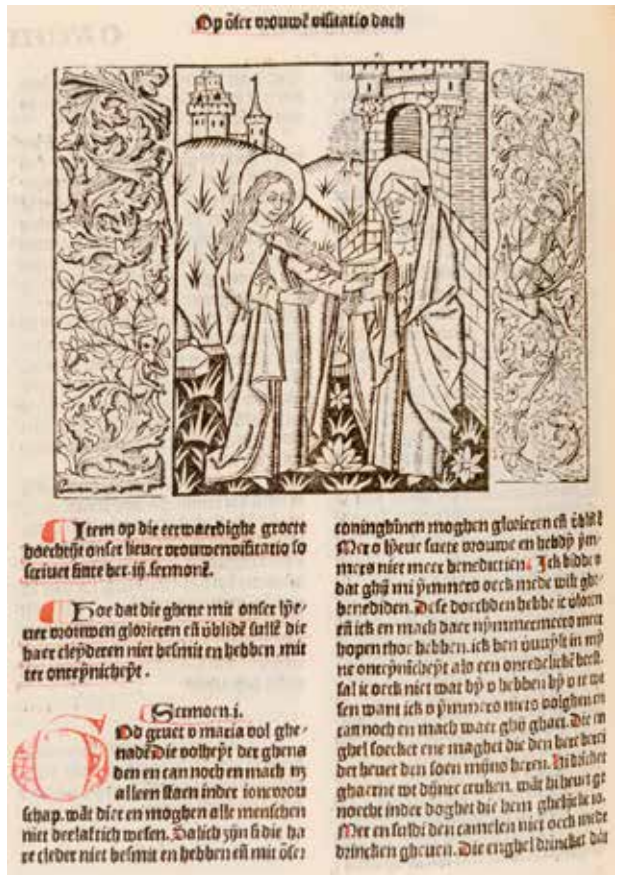 Op õser vrouwẽ visitatio dach
Item op die eerwaerdighe groete
hoechtijt onser liever vrouwen visitatio so
scrivet sinte ber. iij. sermonẽ.
Hoe dat die ghene mit onser lýe-
ver vrouwen glorieren eñ vblidẽ sullẽ die
haer cleyderen niet besmit en hebben mit
ter onreýnicheýt.
Sermoen. i.
God gruet v maria vol ghe-
nadẽ Die volheýt der ghena
den en can noch en mach nz
alleen staen inder ioncvrou
schap. wãt dier en moghen alle menschen
niet deelaftich wesen. Salich zijn si die ha
re cleder niet besmit en hebben eñ mit õser
coninghinnen moghen glorieren eñ vblidẽ
Mer o lýeve suete vrouwe en hebdý ým-
mers niet meer benedictien. Ick bidde v
dat ghij mi ýmmers oeck mede wilt ghe-
benediden. Dese doechden hebbe ic vloren
eñ ick en mach daer nýmmermeer meer
hopen thoe hebben. ick ben in mý
ne onreýnicheýt als een onredelickẽ beest.
sal ic oeck niet wat bý v hebben bý v te we
sen want ick v ýmmers niets volghen en
can noch en mach waer ghij ghaet. Die en
ghel soecket ene maghet die den here berei
det hevet den soen mijns heren.
ghaerne wt dijnre cruken. wãt hi hevet ge
noecht inder doghet die hem ghelijck is.
Mer en suldi den camelen niet oeck mede
drincken gheven. Die enghel drincket dat